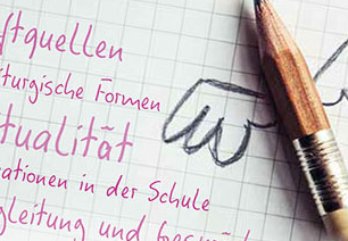 ftquellen
turgische Formen
tualität
ationen in der Schule
gleitung und